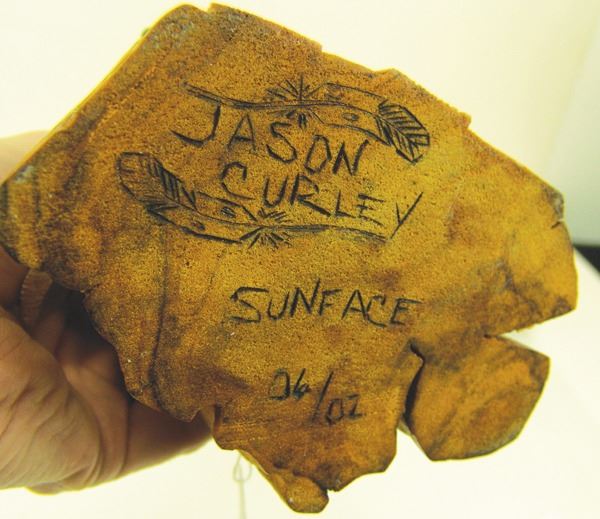 JASON
CURLEY
SUNFACE
06/02